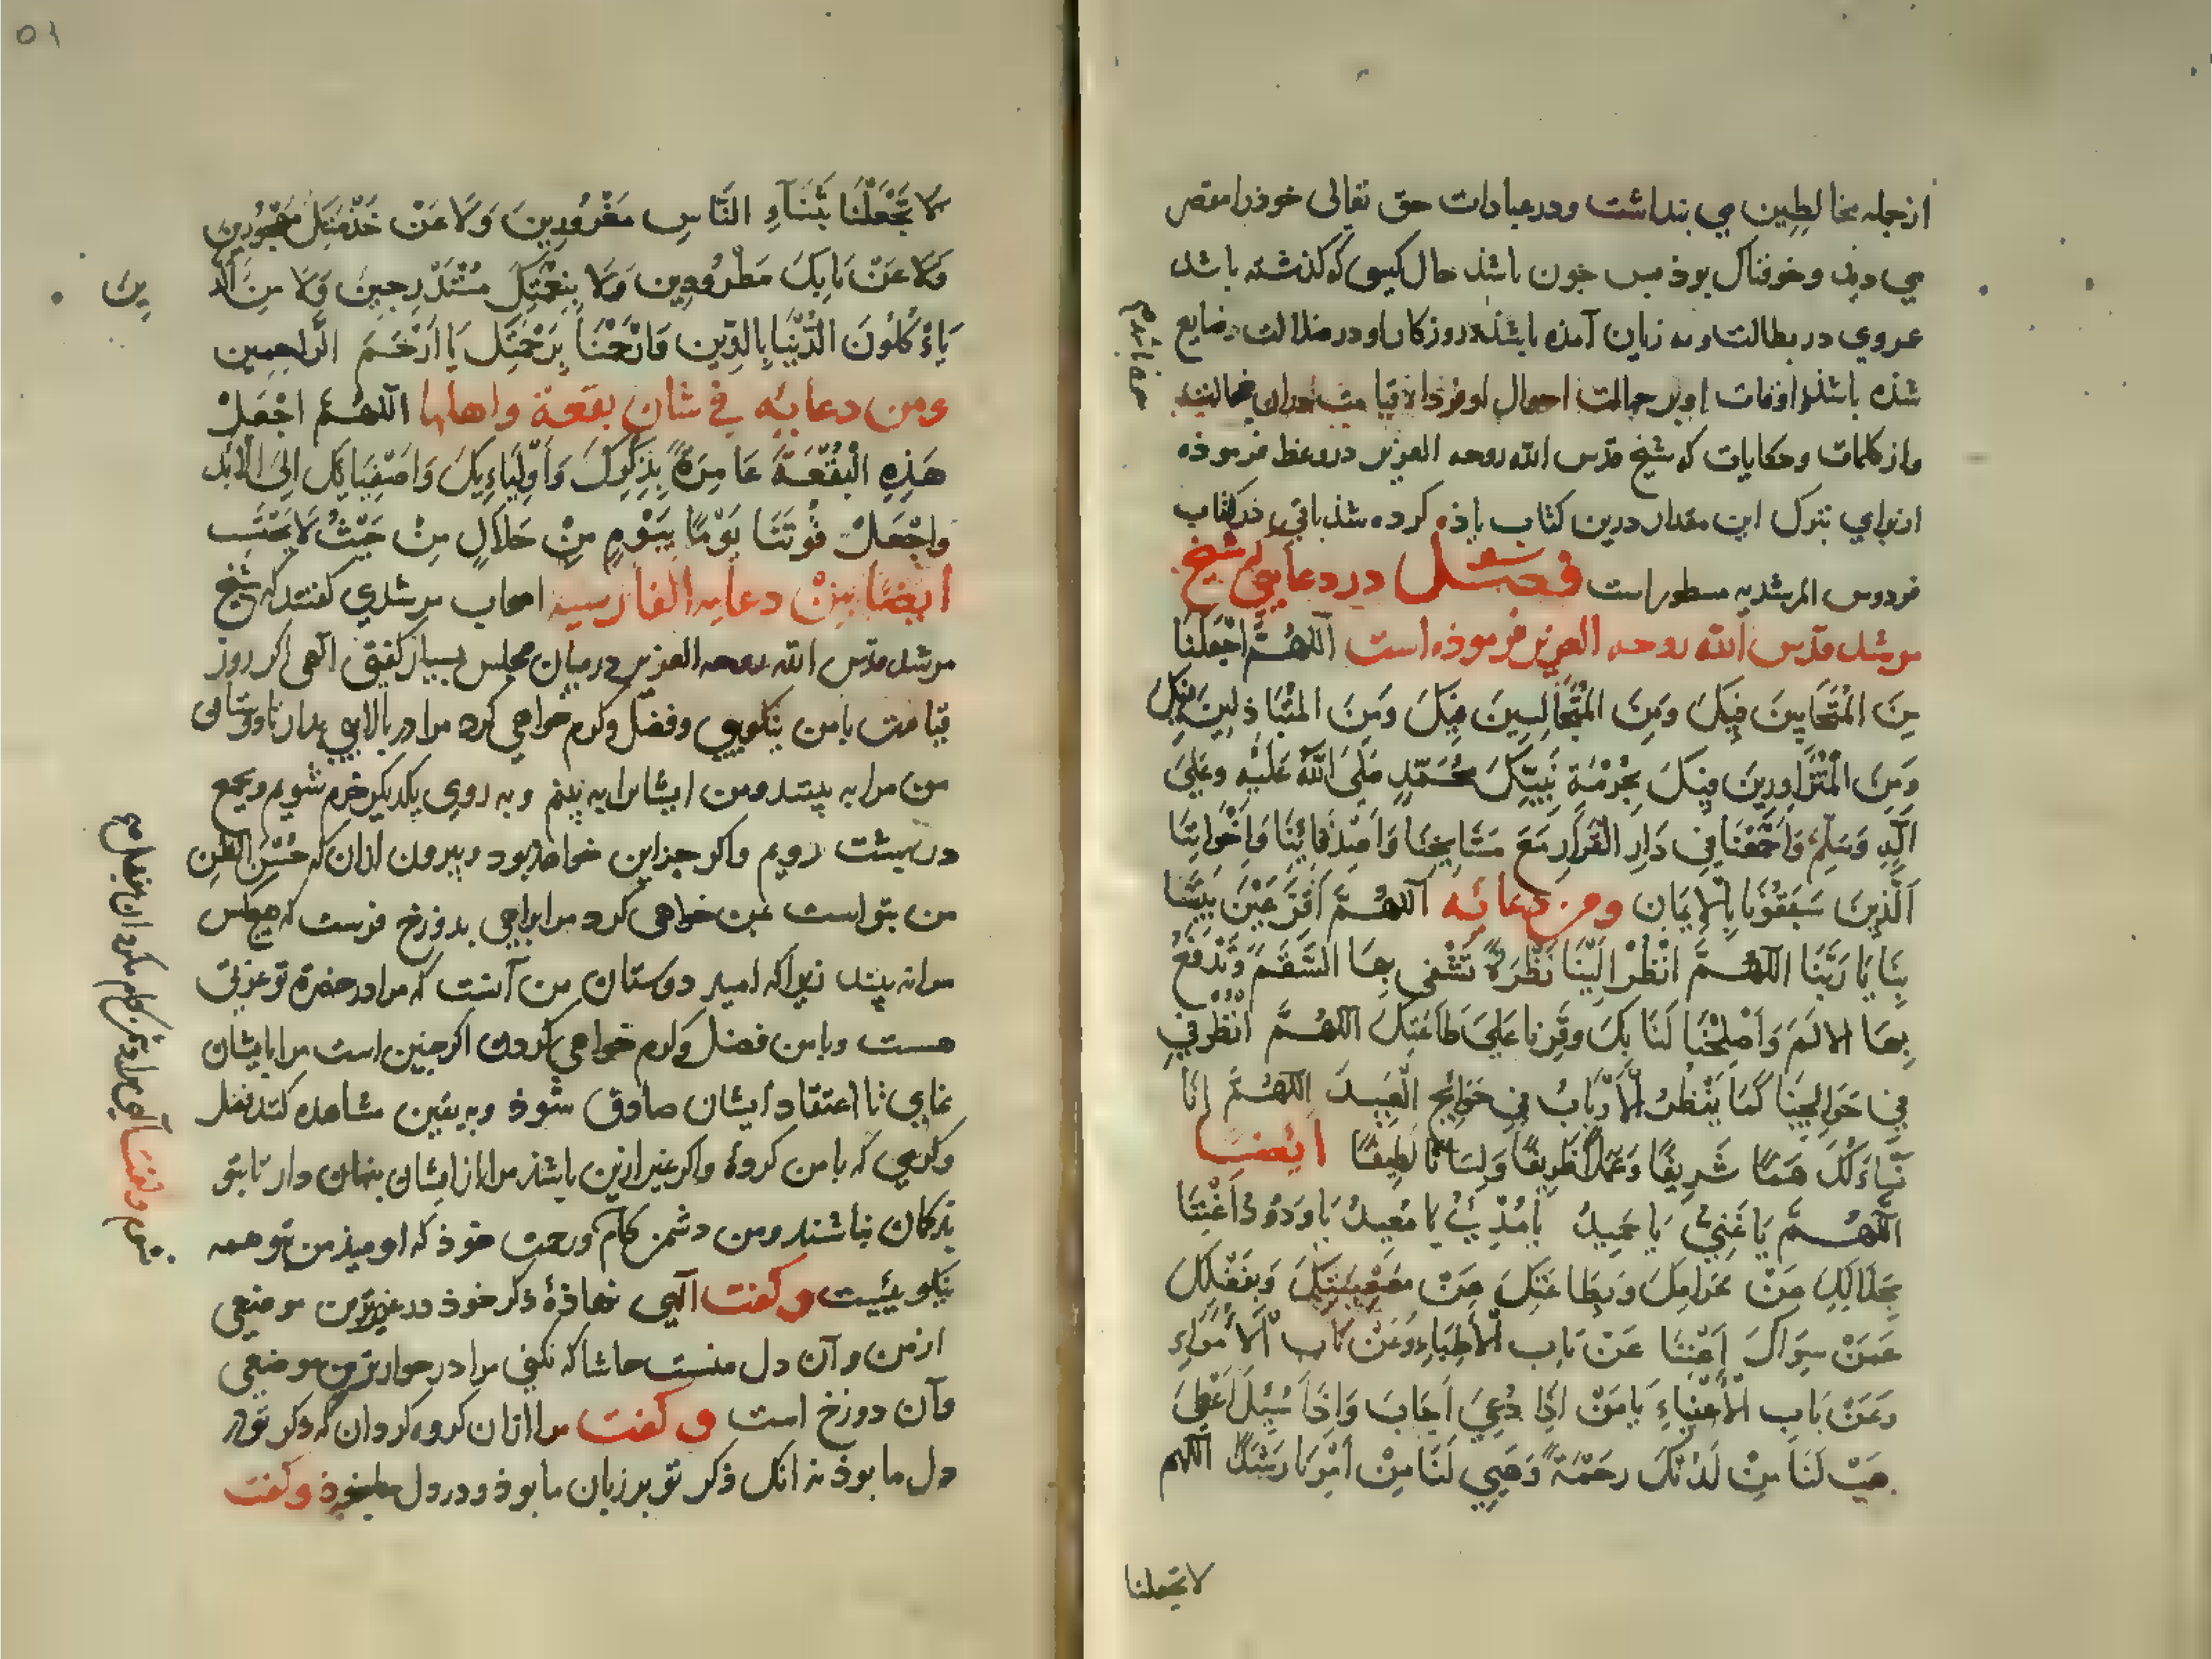 از جمله مخالطین می بنداشت ودر عبادات حق تعالی خوذ را مقصر
می دید وخوفناک بوذ پس جون باشد حال کسی که گذشته باشد
عمر وی در بطالت وبه زیان آمده باشد روزکار او در ضلالت وضایع
شذه باشذ اوقات او در جهالت احوال او فردا قیامت
واز کلمات وحکایات که شیخ قدس الله روحه العزیز در وعظ فرموذه
از برای تبرک این مقدار درین کتاب یاذ کرده شذ باقی در کتاب
فردوس المرشدیه مسطور است فصل در دعاهای شیخ
مرشد قدس الله روحه العزیز فرموذه است اَللهُمَّ اجْعَلْنَا
مِنَ الْمُتَحَابِّينَ فِيكَ وَمِنَ الْمُتَجَالِسِينَ فِيكَ وَمِنَ الْمُتَبَاذِلِينَ فِيكَ
وَمِنَ الْمُتَزَاوِرِينَ فِيكَ بِحُرْمَةِ نَبِيِّكَ مُحَمَّدٍ صَلَّى اللهُ عَلَيْهِ وَعَلَى
آلِهِ وَسَلِّمْ وَاجْمَعْنَا فِي دَارِ الْقَرَارِ مَعَ مَشَايِخِنَا وَاَصْدِقَائِنَا وَاِخْوَانِنَا
اَلَّذِينَ سَبَقُونَا بِالْاِيمَانِ ومن دعائه اَللهُمَّ اَقِرَّ عَيْنَ نَبِيِّنَا
بِنَا يَا رَبَّنَا اللهُمَّ انْظُرْ اِلَيْنَا نَظْرَةً تَشْفِي بِهَا السَّقَمَ وَتَدْفَعُ
بِهَا الالَمَ وَاَصْلِحْنَا لَنَا بِكَ وَقَوِّنَا عَلَى طَاعَتِكَ اللهُمَّ انْظُرْ فِي
فِي حَوَايِجِنَا كَمَا يَنْظُرُ الْاَرْبَابُ فِي حَوَايِجِ الْعَبِيدِ اللهُمَّ اِنَّا
نَسْاَلُكَ هَمًّا شَرِيفًا وَعَمَلًا ظَرِيفًا وَلِسَانًا لَطِيفًا ايضا
اَللهُمَّ يَا غَنِيُّ يَا حَمِيدُ يَا مُبْدِئُ يَا مُعِيدُ يَا وَدُودُ اَغْنِنَا
بِحَلَالِكَ عَنْ حَرَامِكَ وَبِطَاعَتِكَ عَنْ مَعْصِيَتِكَ وَبِفَضْلِكَ
عَمَّنْ سِوَاكَ اَغْنِنَا عَنْ بَابِ الْاَطِبَّاءِ وَعَنْ بَابِ الْاُمَرَاءِ
وَعَنْ بَابِ الْاَغْنِيَاءِ يَا مَنْ اِذَا دُعِيَ اَجَابَ وَاِذَا سُئِلَ اَعْطَى
هَبْ لَنَا مِنْ لَدُنْكَ رَحْمَةً وَهَيِّئْ لَنَا مِنْ اَمْرِنَا رَشَدًا اللهم
لا تجعلنا
٥١
لَا تَجْعَلْنَا بِثَنَاءِ النَّاسِ مَغْرُورِينَ وَلَا عَنْ خِدْمَتِكَ مَهْجُورِين
وَلَا عَنْ بَابِكَ مَطْرُودِينَ وَلَا بِنِعْمَتِكَ مُسْتَدْرَجِينَ وَلَا مِنَ الَّذ
ين
يَاْكُلُونَ الدُّنْيَا بِالدِّينِ وَارْحَمْنَا بِرَحْمَتِكَ يَا اَرْحَمَ الرَّاحِمِين
ومن دعائه في شان بقعة واهلها اللهُمَّ اجْعَلْ
هَذِهِ الْبُقْعَةَ عَامِرَةً بِذِكْرِكَ وَاَوْلِيَاءِيكَ وَاَصْفِيَايِكَ اِلَى الْاَبَد
وَاجْعَلْ قُوتَنَا يَوْمًا بِيَوْمٍ مِنْ حَلَالٍ مِنْ حَيْثُ لَا نَحْتَسِب
ايضا مِنْ دعائه الفارسیه اصحاب مرشدی کفتند که شیخ
مرشد قدس الله روحه العزیز در میان مجلس بسیار کفتی الهی اکر روز
قیامت با من نیکویی وفضل وکرم خواهی کرد مرا در بالایی بدار تا دوستان
من مرا به بینند ومن ایشانرا به بینم وبه روی یکدیکر خرم شویم وبجمع
در بهشت رویم واکر جز این خواهد بود وبیرون ازان که حُسْنَ الظَّنِ
من بتو است بمن خواهی کرد مرا براهی بدوزخ فرست که هیجکس
مرا نه بیند زیرا که امید دوستان من آنست که مرا در حضرة تو عزتی
هست وبا من فضل وکرم خواهی کردن اکر جنین است مرا بایشان
نمای تا اعتقاد ایشان صادق شوذ وبه یقین مشاهده کنند فضل
وکرمی که با من کردهٔ واکر غیر ازین باشذ مرا از ایشان بنهان دار تا بتو
بذکمان نباشند ومن دشمن کام نشوم ورحمت خوذ که اومیذ من بتو همه
نیکوییست و کفت الهی نهاذهٔ ذکر خوذ در عزیزترین موضعی
از من وآن دل منست حاشا که نکنی مرا در خوارترین موضعی
وآن دوزخ است و کفت مرا ازان کروه کردان که ذکر تو در
دل ما بوذ نه انک ذکر تو بر زبان ما بوذ ودر دل ما نبوذ وکفت